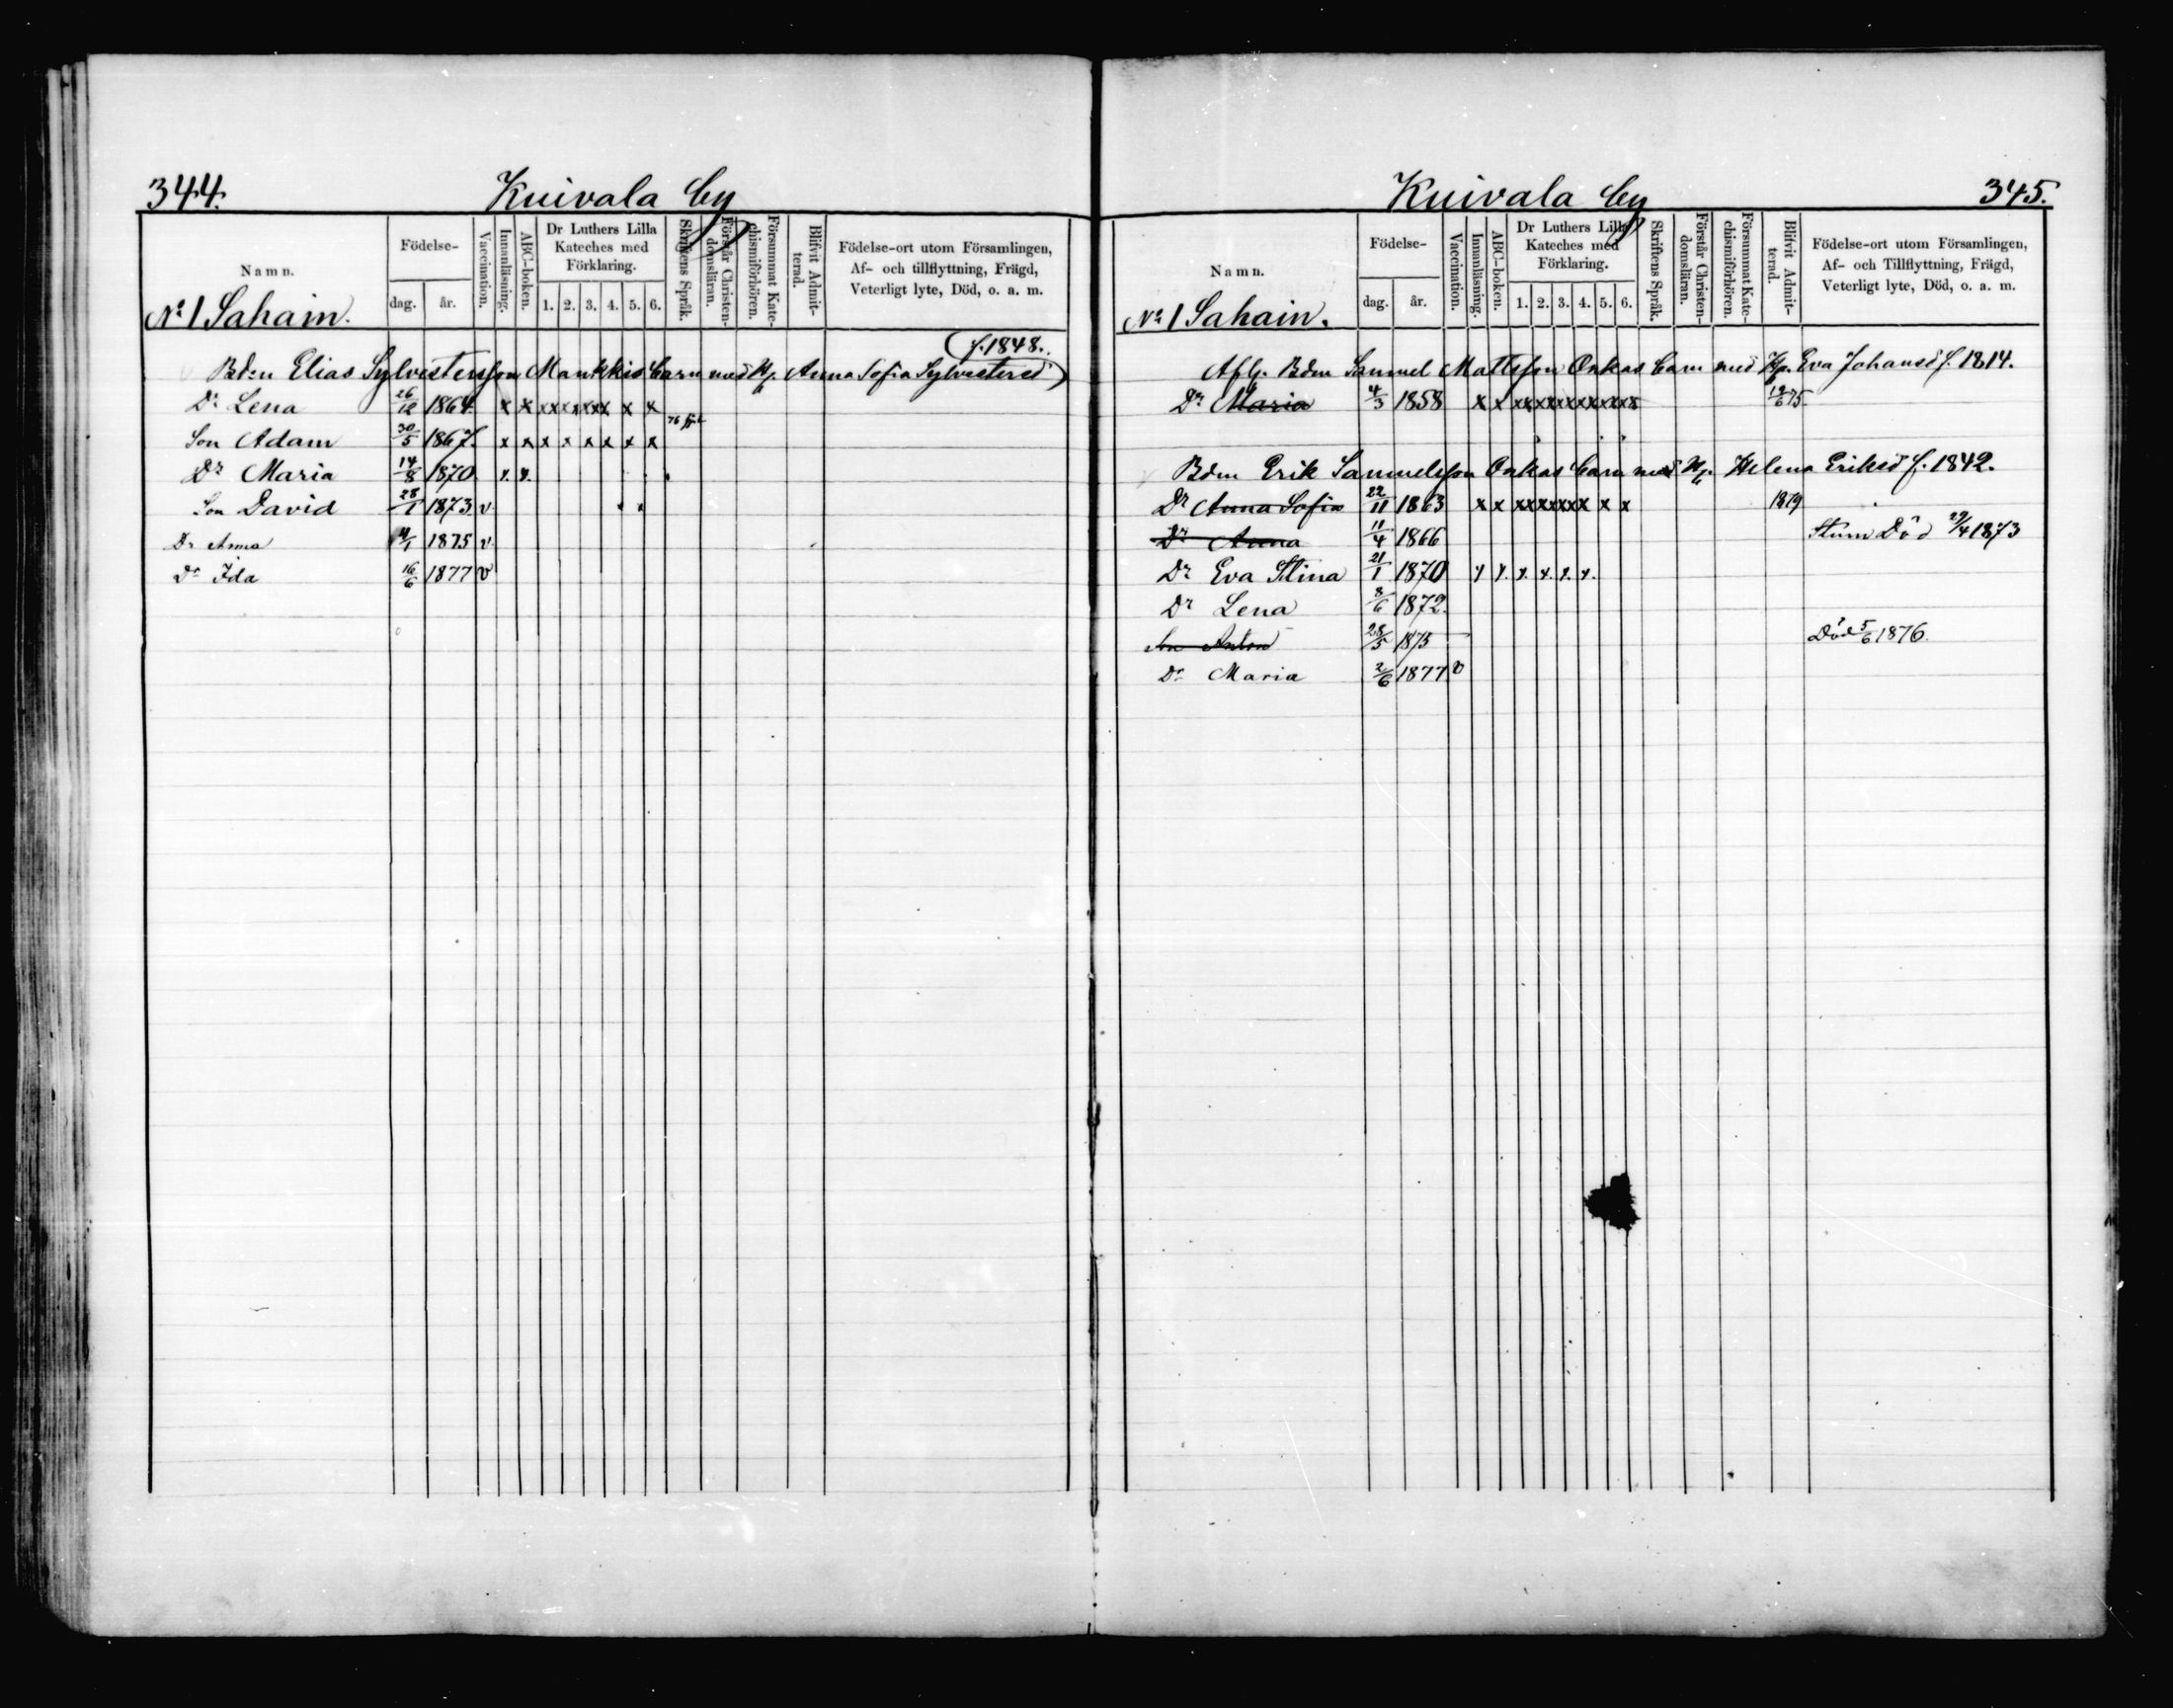 344.
Kuivala by
Namn.
Födelse-
dag.
år.
Vaccination.
Innanläsning.
ABC-boken.
Dr Luthers Lilla
Kateches med
Förklaring.
1. 2. 3. 4. 5. 6.
Skriftens Språk.
Förstår Christen-
domsläran.
Försummat Kate-
chismiförhören.
Blifvit Admit-
terad.
Födelse-ort utom Församlingen,
Af- och tillflyttning, Frägd,
Veterligt lyte, Död, o. a. m.
No 1 Sahain.
f. 1848.
Bdn Elias Sylvestersson Maukkis barn med Hu. Anna Sofia Sylvestersd
Dr Lena 26/12 1864 x x x x x x x x x x
Son Adam 30/5 1867 x x x x x x x x
Dr Maria 14/8 1870 x. x.
Son David 28/1 1873 v
Dr Anna 4/1 1875 v
Dr Ida 16/6 1877 v
Kuivala by
345.
Namn.
Födelse-
dag.
år.
Vaccination.
Innanläsning.
ABC-boken.
Dr Luthers Lilla
Kateches med
Förklaring.
1. 2. 3. 4. 5. 6.
Skriftens Språk.
Förstår Christen-
domsläran.
Försummat Kate-
chismiförhören.
Blifvit Admit-
terad.
Födelse-ort utom Församlingen,
Af- och Tillflyttning, Frägd,
Veterligt lyte, Död, o. a. m.
No 1 Sahain.
Afl. Bdn Samuel Mattsson Onkas barn med Hu. Eva Johansd f. 1814.
Dr Maria 4/3 1858 x x x x x x x x x x x x 12/6 75
Bdn Erik Samuelsson Onkas barn med Hu. Helena Eriksd f. 1842.
Dr Anna Sofia 22/11 1863 x x x x x x x x x x 1879
Dr Anna 11/4 1866 Stum Död 29/4 1873
Dr Eva Stina 21/1 1870 x x. x. x. x. x.
Dr Lena 8/6 1872.
Son Anton 28/5 1875 Död 5/6 1876.
Dr Maria 2/6 1877 v